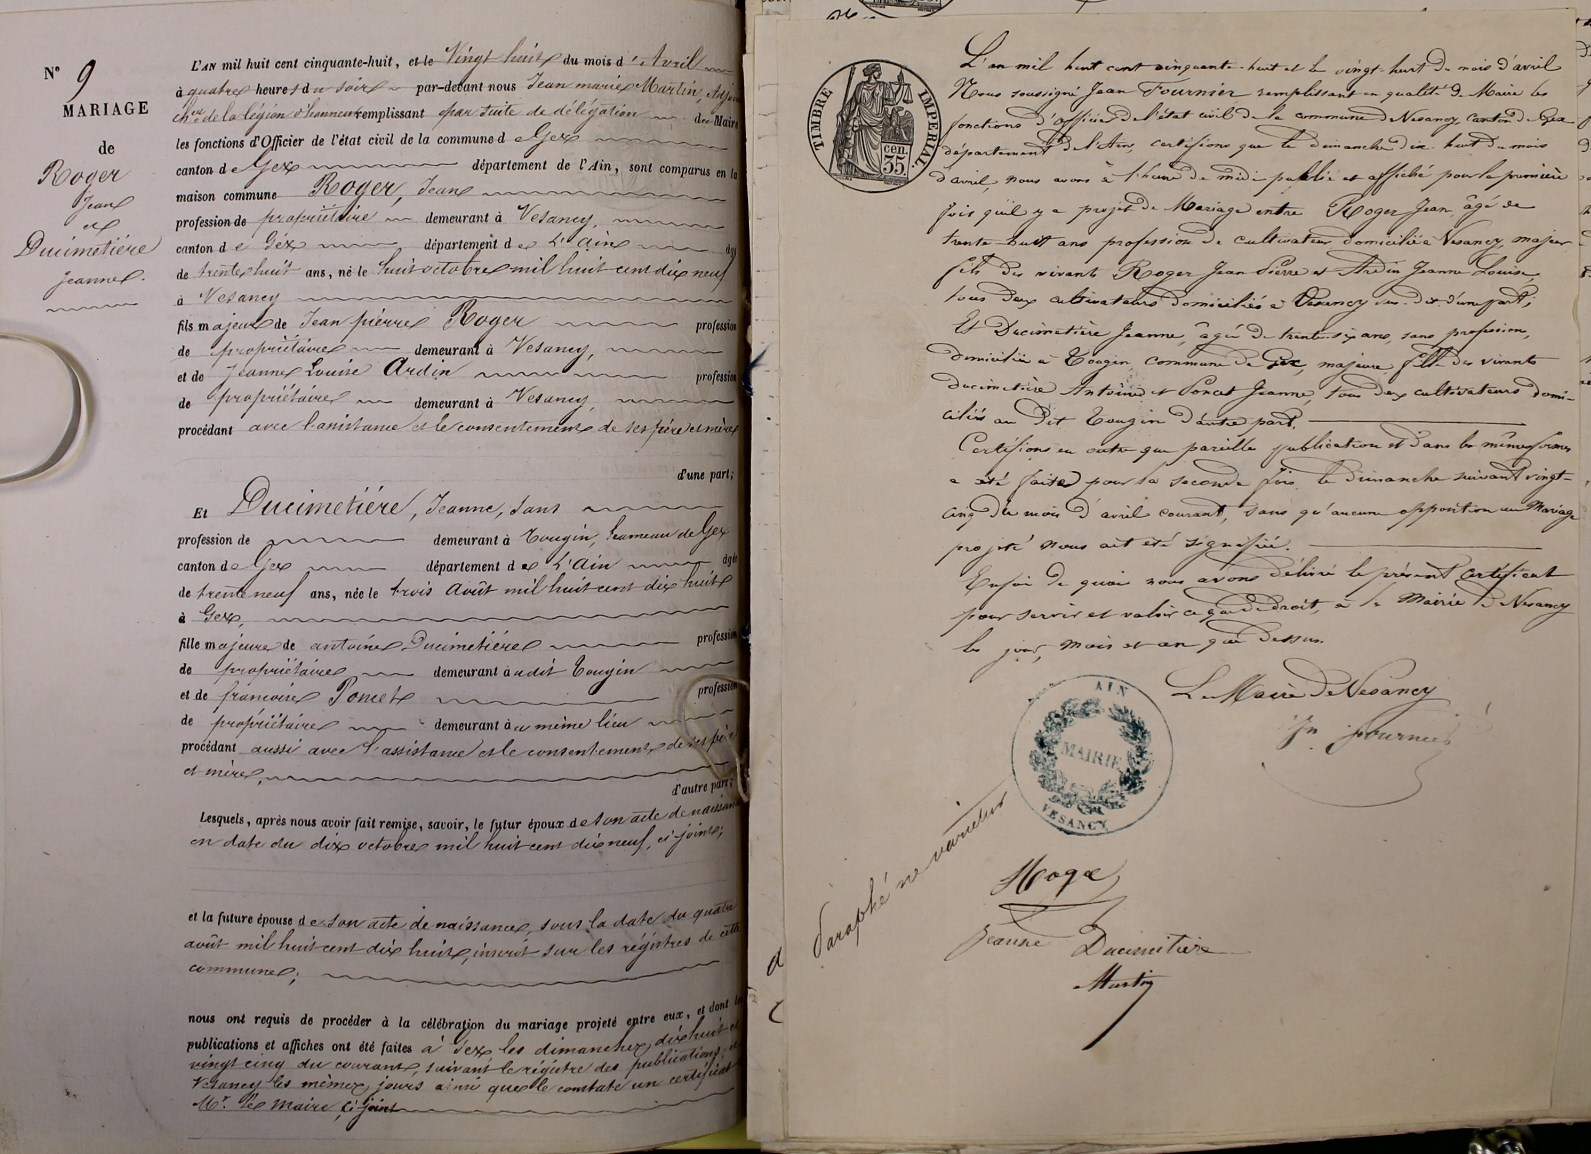 N° 9
MARIAGE
de
Roger
Jean
et
Ducimetière
Jeanne.
L'AN mil huit cent cinquante-huit, et le Vingt huit du mois d'Avril
à quatre heures du soir par-devant nous Jean marie Martin, Adjoint
chr de la légion d'honneur remplissant par suite de délégation du Maire
les fonctions d'Officier de l'état civil de la commune de Gex
canton de Gex département de l'Ain, sont comparus en la
maison commune Roger, Jean
profession de propriétaire demeurant à Vesancy,
canton de Géx département de L'Ain âgé
de trente huit ans, né le huit octobre mil huit cent dix neuf
à Vesancy
fils majeur de Jean pierre Roger profession
de propriétaire demeurant à Vesancy,
et de Jeanne Louise Ardin profession
de propriétaire demeurant à Vesancy,
procédant avec l'assistance et le consentement de ses père et mère
d'une part;
Et Ducimetière, Jeanne, sans
profession de demeurant à Tougin, hameau de Gex
canton de Gex département de L'Ain âgée
de trente neuf ans, née le trois Août mil huit cent dix huit
à Gex,
fille majeure de antoine Ducimetière profession
de propriétaire demeurant à udit Tougin
et de françoise Poncet profession
de propriétaire demeurant à u même lieu
procédant aussi avec l'assistance et le consentement de ses père
et mère,
d'autre part;
Lesquels, après nous avoir fait remise, savoir, le futur époux de son acte de naissance
en date du dix octobre mil huit cent dix neuf, ci-joint;
et la future épouse de son acte de naissance, sous la date du quatre
août mil huit cent dix huit, inscrit sur les régistres de cette
commune;
nous ont requis de procéder à la célébration du mariage projeté entre eux, et dont les
publications et affiches ont été faites à Gex les dimanches dix huit et
vingt cinq du courant, suivant le régistre des publications, et
Vesancy les mêmes jours ainsi que le constate un certificat
Mr. le maire, ci joint
TIMBRE IMPERIAL
cen.
35
L'an mil huit cent cinquante-huit et le vingt-huit du mois d'avril
Nous soussigné Jean Fournier remplissant en qualité de Maire les
fonctions d'officier de l'état civil de la commune de Vesancy Canton de Gex
département de l'Ain, certifions que le dimanche dix huit du mois
d'avril, nous avons à l'heure de midi publié et affiché pour la première
fois qu'il y a projet de Mariage entre Roger Jean, âgé de
trente-huit ans profession de cultivateur domicilié à Vesancy, majeur
fils des vivants Roger Jean Pierre et Ardin Jeanne Louise,
tous deux cultivateurs domiciliés à Vesancy sus-dit d'une part;
Et Ducimetière Jeanne, âgée de trente-six ans, sans profession,
domiciliée à Tougin commune de Gex, majeure, fille des vivants
Ducimetière Antoine et Poncet Jeanne, tous deux cultivateurs domi-
ciliés au dit Tougin d'autre part.
Certifions en outre que pareille publication et dans les mêmes formes
a été faite pour la seconde fois, le dimanche suivant vingt-
cinq du mois d'avril courant, sans qu'aucune opposition au Mariage
projeté nous ait été signifiée.
Enfoi de quoi nous avons délivré le présent Certificat
pour servir et valoir ce que de droit, à la Mairie de Vesancy
les jour, mois et an que dessus.
Le Maire de Vesancy
Jn fournier
AIN
MAIRIE
VESANCY
Paraphé ne varietur
Roger
Jeanne Ducimetière
Martin